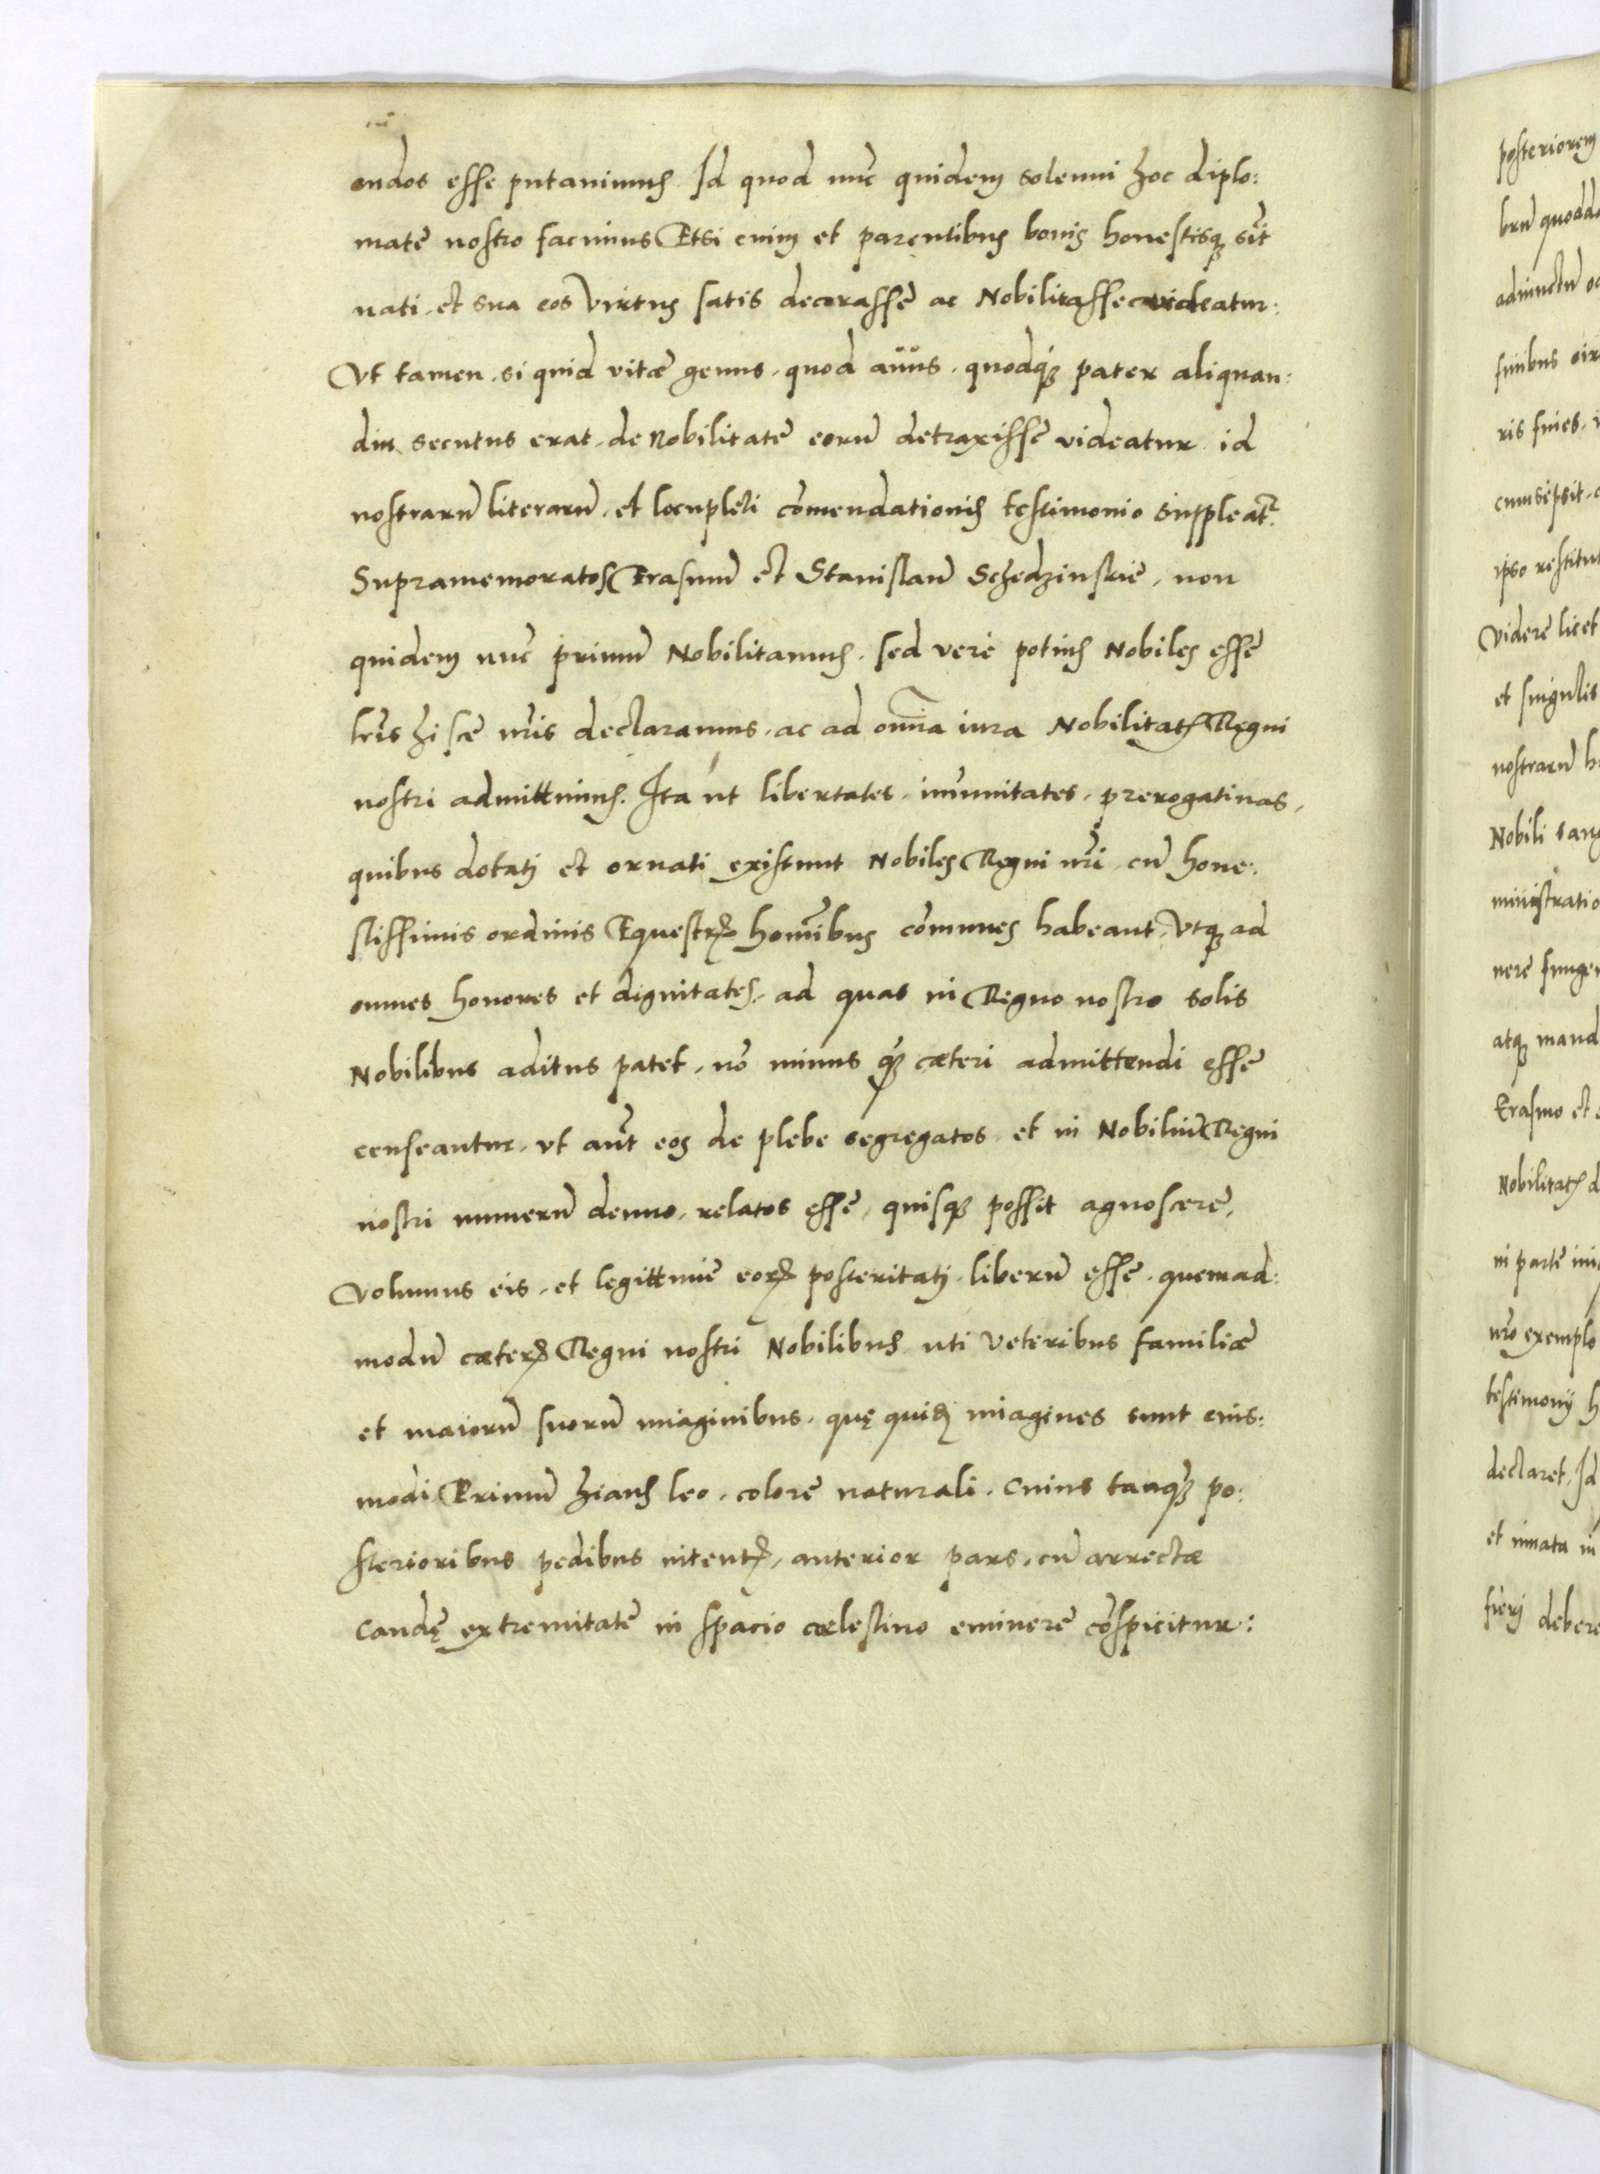 endos esse putavimus. Id quod nu̅c quidem solenni hoc diplo:
mate nostro facimus Etsi enim et parentibus bonis honestisq; su̅t
nati, et sua eos Virtus satis decorasse ac Nobilitasse videatur:
Vt tamen, si quid vitæ genus, quod auus, quodq; pater aliquan:
diu secutus erat, de Nobilitate eoru̅ detraxisse videatur id
nostraru̅ literaru̅, et locupleti co̅mendationis testimonio suppleatr.
Supramemoratos Erasmu̅ et Stanislau̅ Schedzinskie, non
quidem nu̅c primu̅ Nobilitamus, sed vere potius Nobiles esse
lr̅is hisce nr̅is declaramus, ac ad om̅ia iura Nobilitatꝭ Regni
nostri admittimus. Ita ut libertates, im̅unitates, prerogatiuas,
quibus dotatj et ornati existunt Nobiles Regni nr̅i cu̅ hone:
stissimis ordinis Equestrꝭ homi̅bus co̅munes habeant, Vtq; ad
omnes honores et dignitates, ad quas in Regno nostro solis
Nobilibus aditus patet, no̅ minus q̅; cæteri admittendi esse
censeantur, vt aut̅ eos de plebe segregatos, et in Nobiliu̅ Regni
nostri numeru̅ denuo, relatos esse, quisq; possit agnoscere,
Volumus eis, et legittimæ eorꝝ posteritatj, liberu̅ esse, quemad:
modu̅ cæterꝭ Regni nostri Nobilibus, uti Veteribus familiæ
et maioru̅ suoru̅ imaginibus, quę quidꝫ imagines sunt eius:
modi Primu̅ hians leo, colore naturali, cuius tanq; po:
sterioribus pedibus nitentꝭ, anterior pars, cu̅ arrectæ
caudę extremitate in spacio cælestino eminere co̅spicitur:
posteriorem
adiunctu̅
finibus
ris fines,
ipso restitut
Videre licet
et singulis
nostraru̅
Nobili
ministratio
atq; mand
Erasmo et
Nobilitatꝭ d
in parte
nr̅o exemplo
testimonij h
declaret, Id
et innata in
fierj debere